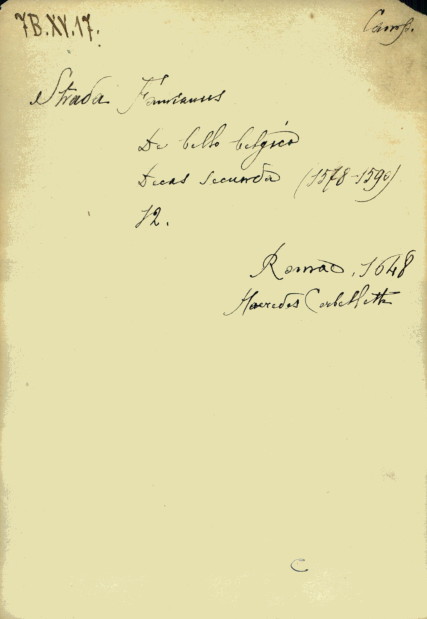 7B.XV.17.
Camp.
Strada Famianus
De bello belgico
Decas secunda (1578-1590)
12.
Romae, 1648
Haeredes Corbelletti
C